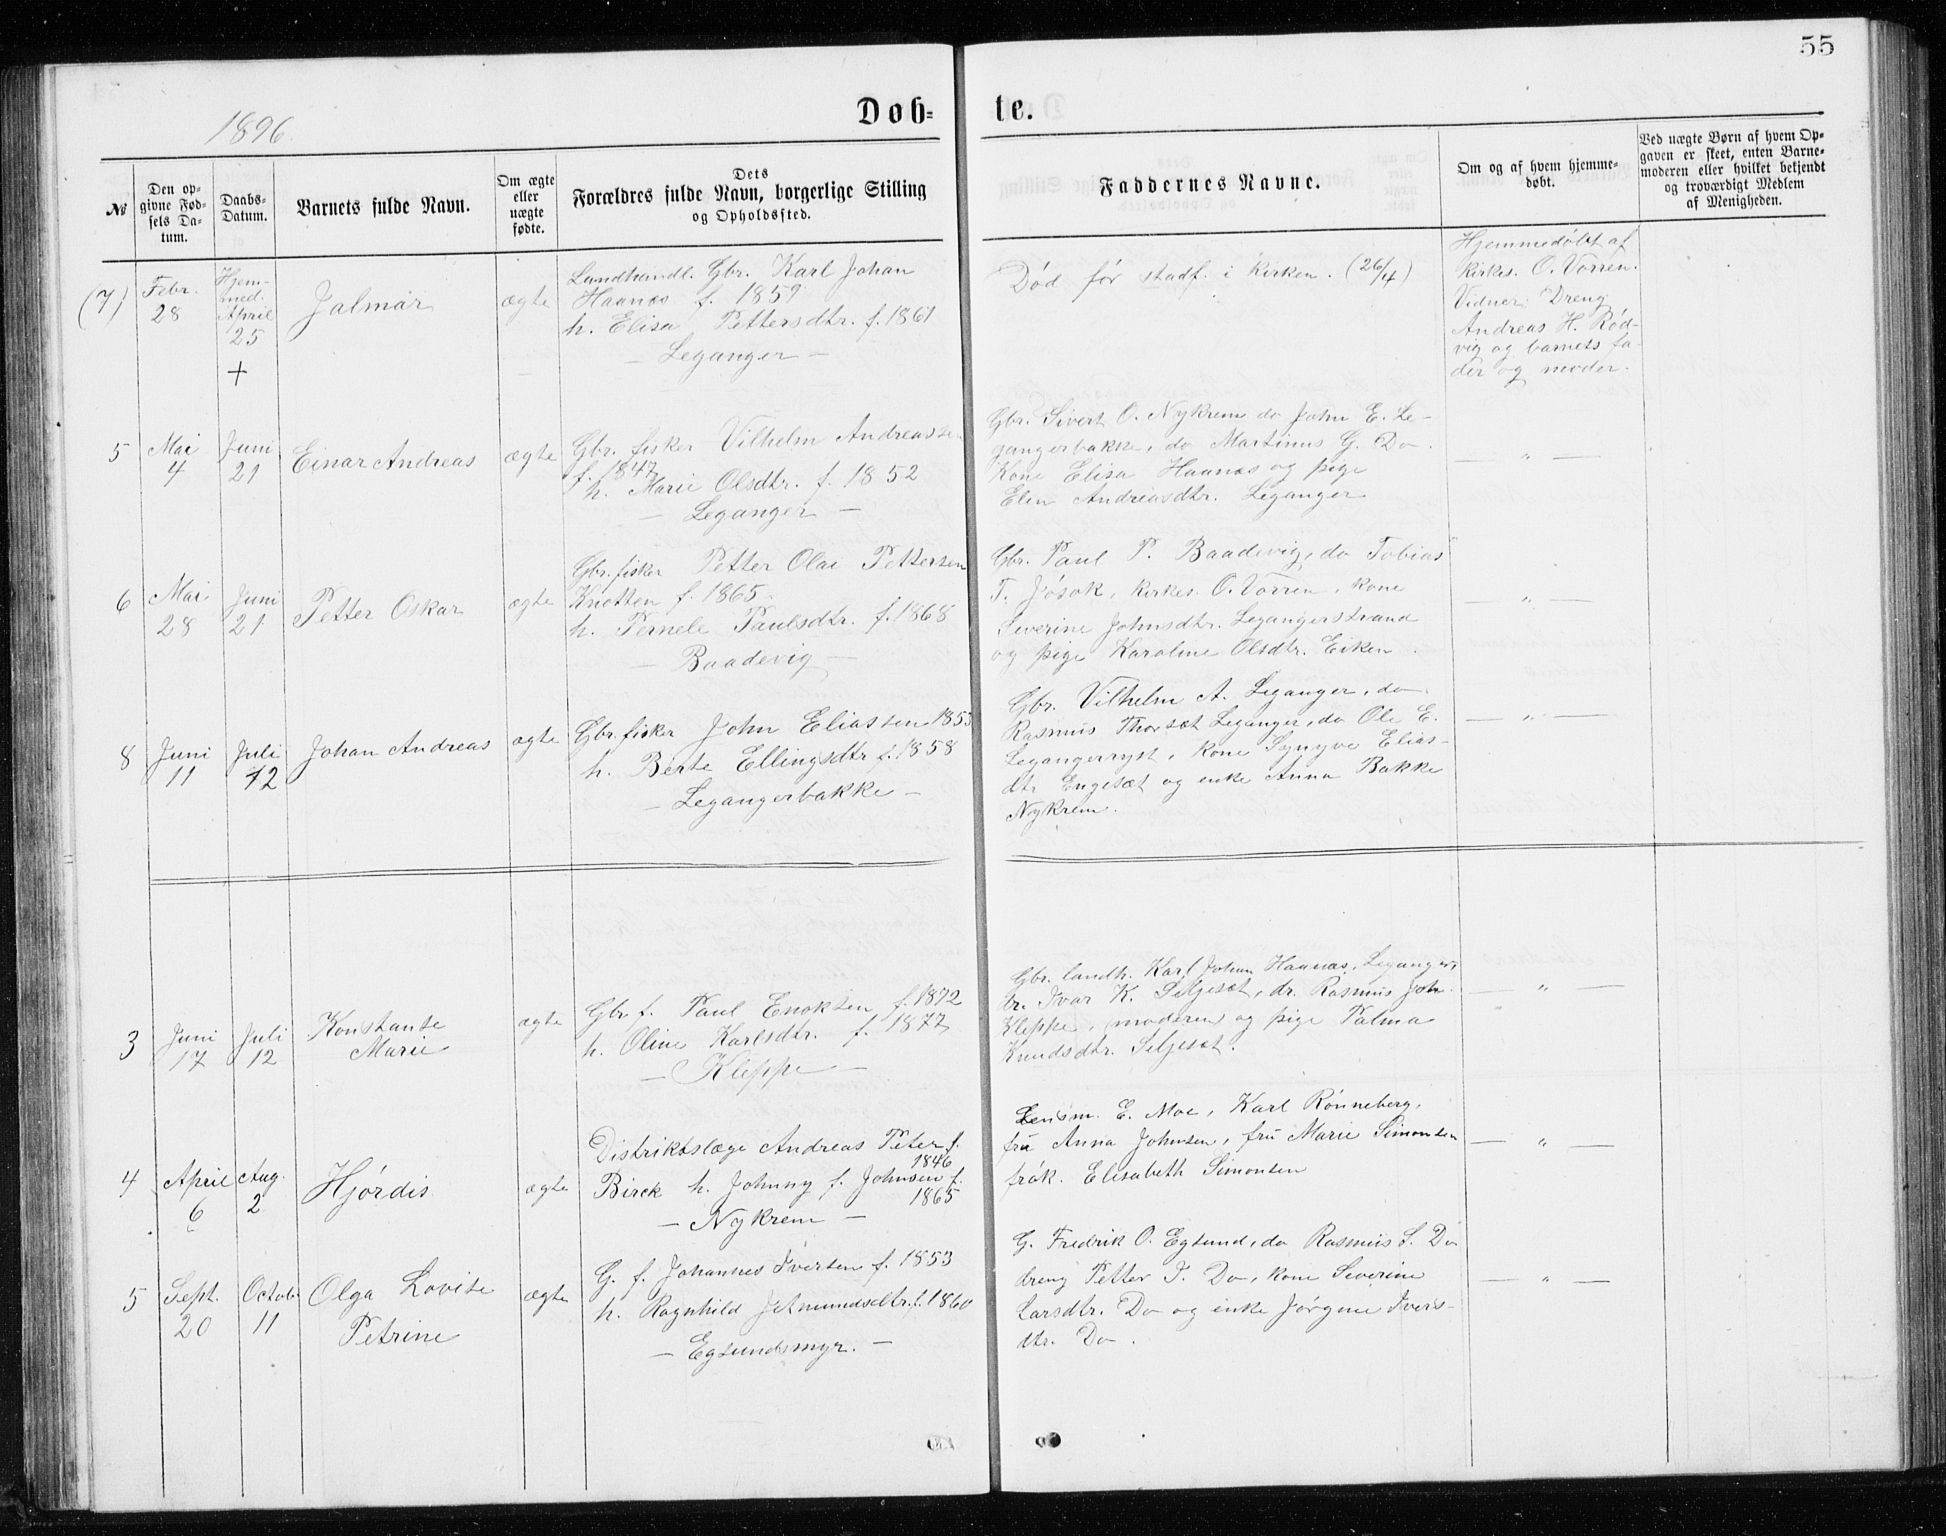 55
1896.
Døb-
te.
№
Den op-
givne Fød-
sels Da-
tum.
Daabs-
Datum.
Barnets fulde Navn.
Om ægte
eller
uægte
fødte.
Dets
Forældres fulde Navn, borgerlige Stilling
og Opholdssted.
Faddernes Navne.
Om og af hvem hjemme-
døbt.
Ved uægte Børn af hvem Op-
gaven er skeet, enten Barne-
moderen eller hvilket bekjendt
og troværdigt Medlem
af Menigheden.
(7)
Febr.
28
Hjem-
med.
April
25
+
Jalmar
ægte
Landhandl. Gbr. Karl Johan
Haanæs f. 1859
h. Elisa Pettersdtr. f. 1861
- Leganger -
Død før stadf. i Kirken. (26/4)
Hjemmedøbt af
Kirkes. O. Vorren.
Vidner: Dreng
Andreas H. Rød-
vig og barnets fa-
der og moder.
5
Mai
4
Juni
21
Einar Andreas
ægte
Gbr. fisker Vilhelm Andreassen
f. 1847
h. Marie Olsdtr. f. 1852
- Leganger -
Gbr. Sivert O. Nykrem do John E. Le-
gangerbakke, do Martinus G. Do.
Kone Elisa Haanæs og pige
Elen Andreasdtr. Leganger
— " —
6
Mai
28
Juni
21
Petter Oskar
ægte
Gbr. fisker Petter Olai Pettersen
Knotten f. 1865.
h. Pernele Paulsdtr. f. 1868
- Baadevig -
Gbr. Paul P. Baadevig, do Tobias
T. Jøsok, Kirkes. O. Vorren, kone
Severine Johnsdtr. Legangerstrand
og pige Karoline Olsdtr. Eiken.
— " —
8
Juni
11
Juli
12
Johan Andreas
ægte
Gbr fisker John Eliassen 1853
h. Berte Ellingsdtr f. 1858
- Legangerbakke -
Gbr. Vilhelm A. Leganger, do
Rasmus Thorsæt Leganger, do Ole E.
Legangerryst, kone Synyve Elias-
dtr Engesæt og enke Anna Bakke
Nykrem.
— " —
3
Juni
17
Juli
12
Konstanse
Marie
ægte
Gbr f. Paul Enoksen f. 1872
h. Oline Karlsdtr. f. 1877
- Kleppe -
Gbr. landh. Karl Johan Haanæs, Leganger,
br. Ivar K. Seljesæt, dr. Rasmus Joh.
Kleppe, moderen og pige Palma
Knudsdtr. Seljesæt.
— " —
4
April
6
Aug.
2
Hjørdis
ægte
Distriktslæge Andreas Peter f.
1846
Birck h. Johnny f. Johnsen f.
1865
- Nykrem -
Lensm. E. Moe, Karl Rønneberg,
fru Anna Johnsen, fru Marie Simonsen
frøk. Elisabeth Simonsen
— " —
5
Sept.
20
Octob.
11
Olga Lovise
Petrine
ægte
G. f. Johannes Iversen f. 1853
h. Ragnhild Jetmundsdtr. f. 1860
- Egsundsmyr. -
G. Fredrik O. Egsund, do Rasmus S. Do
dreng Petter J. Do, kone Severine
Larsdtr. Do og enke Jørgine Ivers-
dtr. Do.
— " —